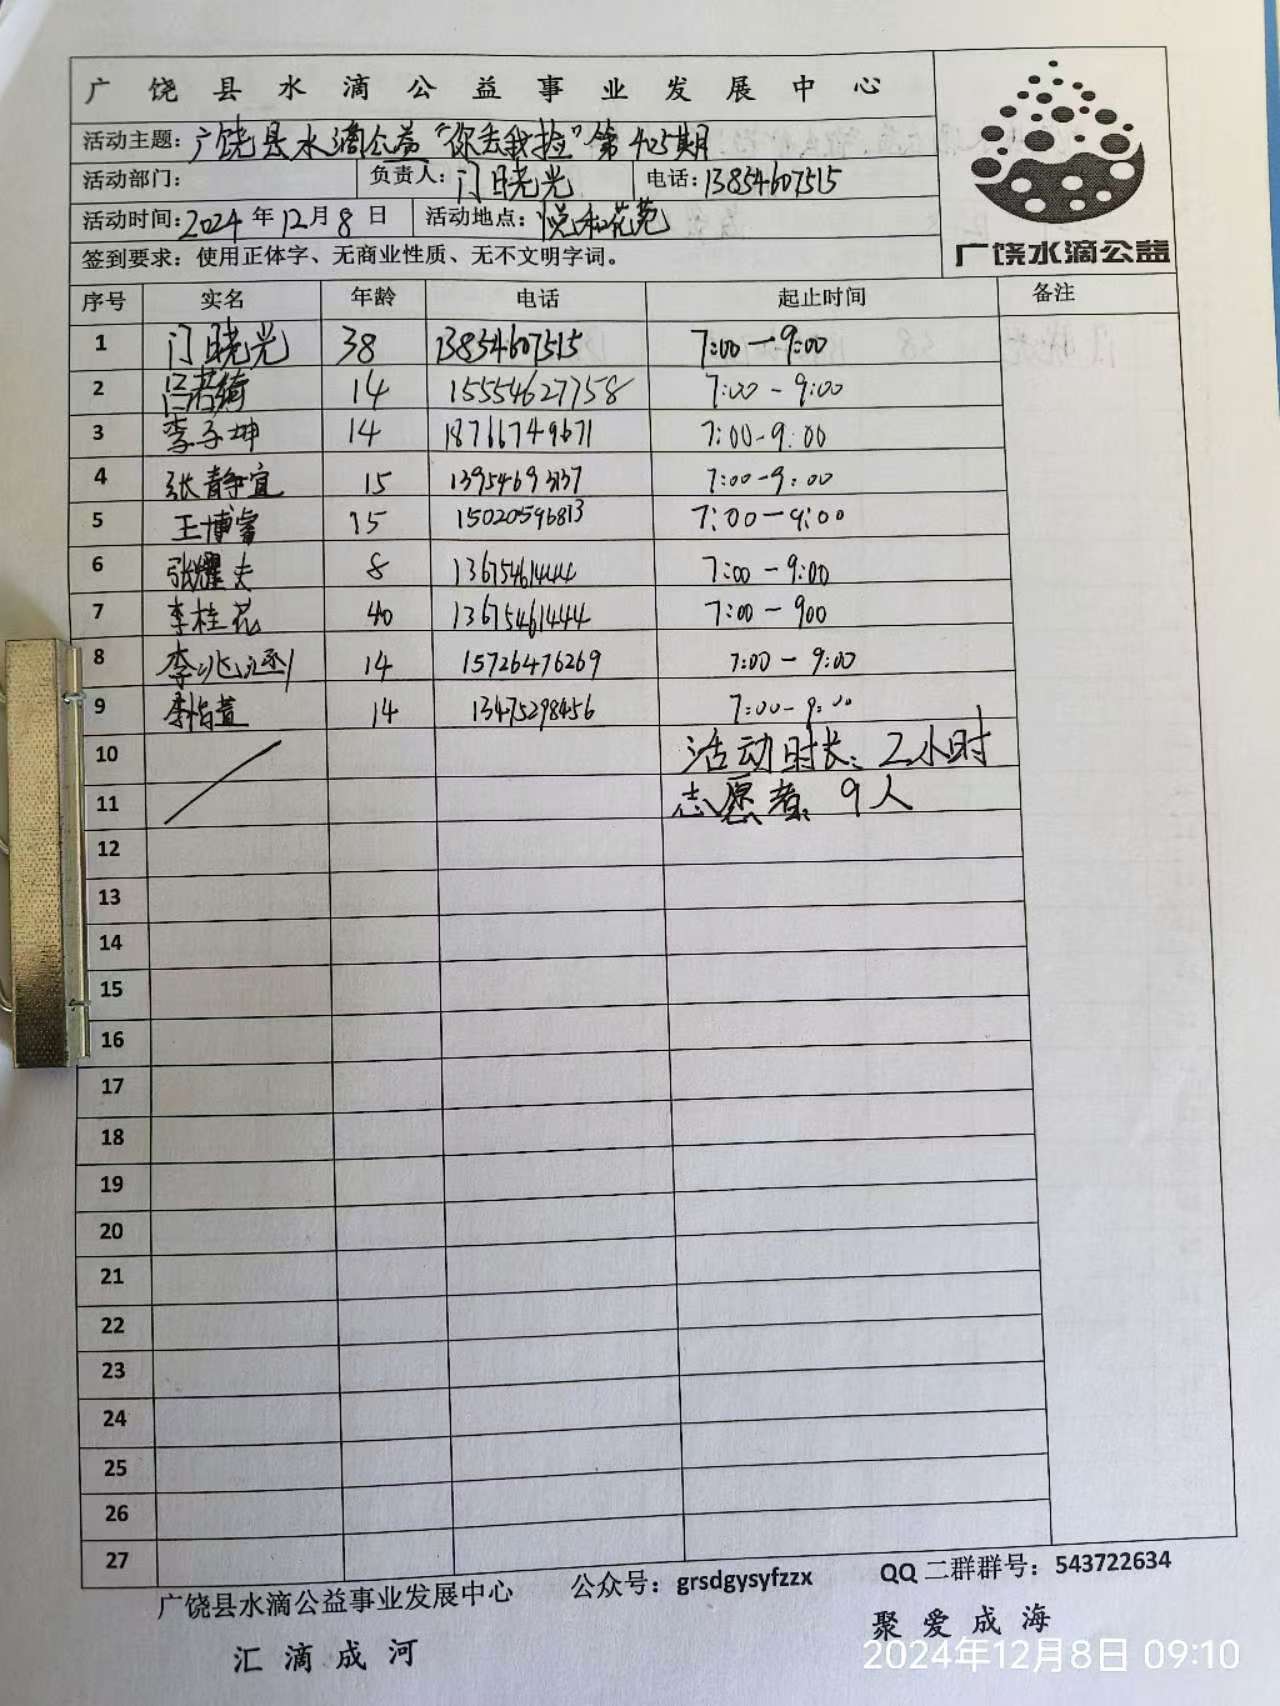 广饶县水滴公益事业发展中心
活动主题：广饶县水滴公益“你丢我捡”第405期
活动部门： 负责人：门晓光 电话：13854607515
活动时间：2024年12月8日 活动地点：悦和花苑
签到要求：使用正体字、无商业性质、无不文明字词。
广饶水滴公益
序号 实名 年龄 电话 起止时间 备注
1 门晓光 38 13854607515 7:00—9:00
2 14 15554627758 7:00-9:00
3 李子坤 14 18766749671 7:00-9:00
4 张静宜 15 13954693137 7:00-9:00
5 王博睿 15 15020596813 7:00-9:00
6 张耀夫 8 13675461444 7:00-9:00
7 李桂花 40 13675461444 7:00-900
8 14 15726476269 7:00-9:00
9 李怡萱 14 13475298456 7:00-9:00
10 活动时长：2小时
11 志愿者：9人
12
13
14
15
16
17
18
19
20
21
22
23
24
25
26
27
广饶县水滴公益事业发展中心 公众号：grsdgysyfzzx QQ二群群号：543722634
汇滴成河 聚爱成海
2024年12月8日 09:10